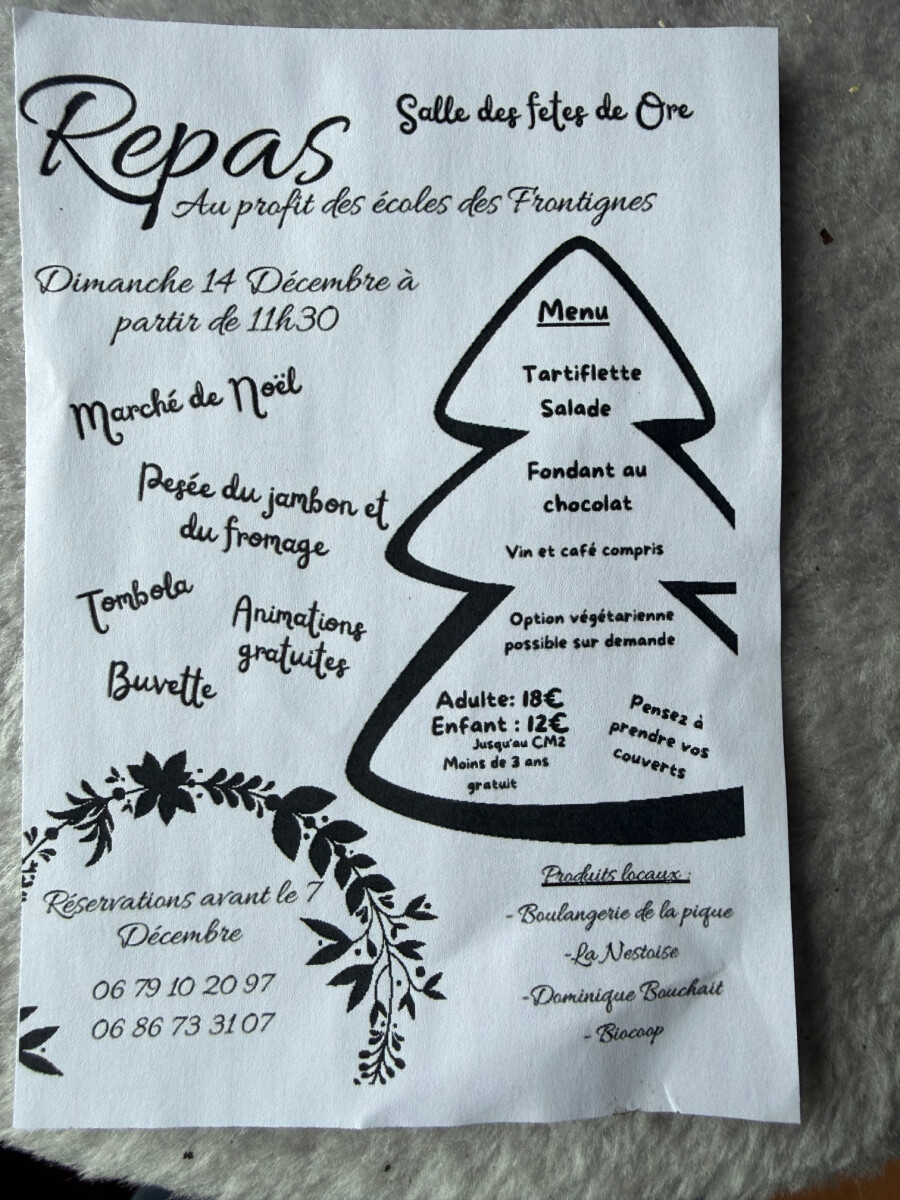 Repas
Salle des fetes de Ore
Au profit des écoles des Frontignes
Dimanche 14 Décembre à
partir de 11h30
Marché de Noël
Pesée du jambon et
du fromage
Tombola
Animations
gratuites
Buvette
Menu
Tartiflette
Salade
Fondant au
chocolat
Vin et café compris
Option végétarienne
possible sur demande
Adulte: 18€
Enfant : 12€
Jusqu'au CM2
Moins de 3 ans
gratuit
Pensez à
prendre vos
couverts
Réservations avant le 7
Décembre
06 79 10 20 97
06 86 73 31 07
Produits locaux :
- Boulangerie de la pique
-La Nestoise
-Dominique Bouchait
- Biocoop